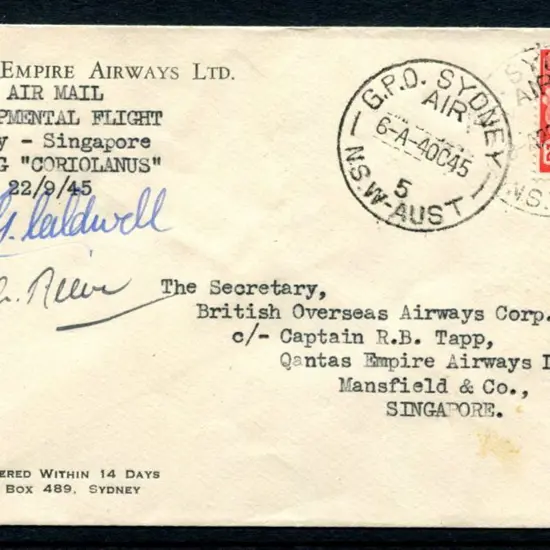 EMPIRE AIRWAYS LTD.
AIR MAIL
PMENTAL FLIGHT
y - Singapore
G "CORIOLANUS"
22/9/45
G. Caldwell
Reeve
G.P.O. SYDNEY
AIR
6-A-40C45
5
N.S.W-AUST
SY
AIR
N.S.
The Secretary,
British Overseas Airways Corp.
c/- Captain R.B. Tapp,
Qantas Empire Airways L
Mansfield & Co.,
SINGAPORE.
ERED WITHIN 14 DAYS
BOX 489, SYDNEY